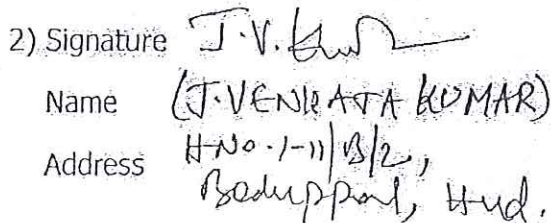 2) Signature J.V.Kum
Name (J.VENKATA KUMAR)
Address H-No.1-11/B/2,
Boduppal, Hyd.